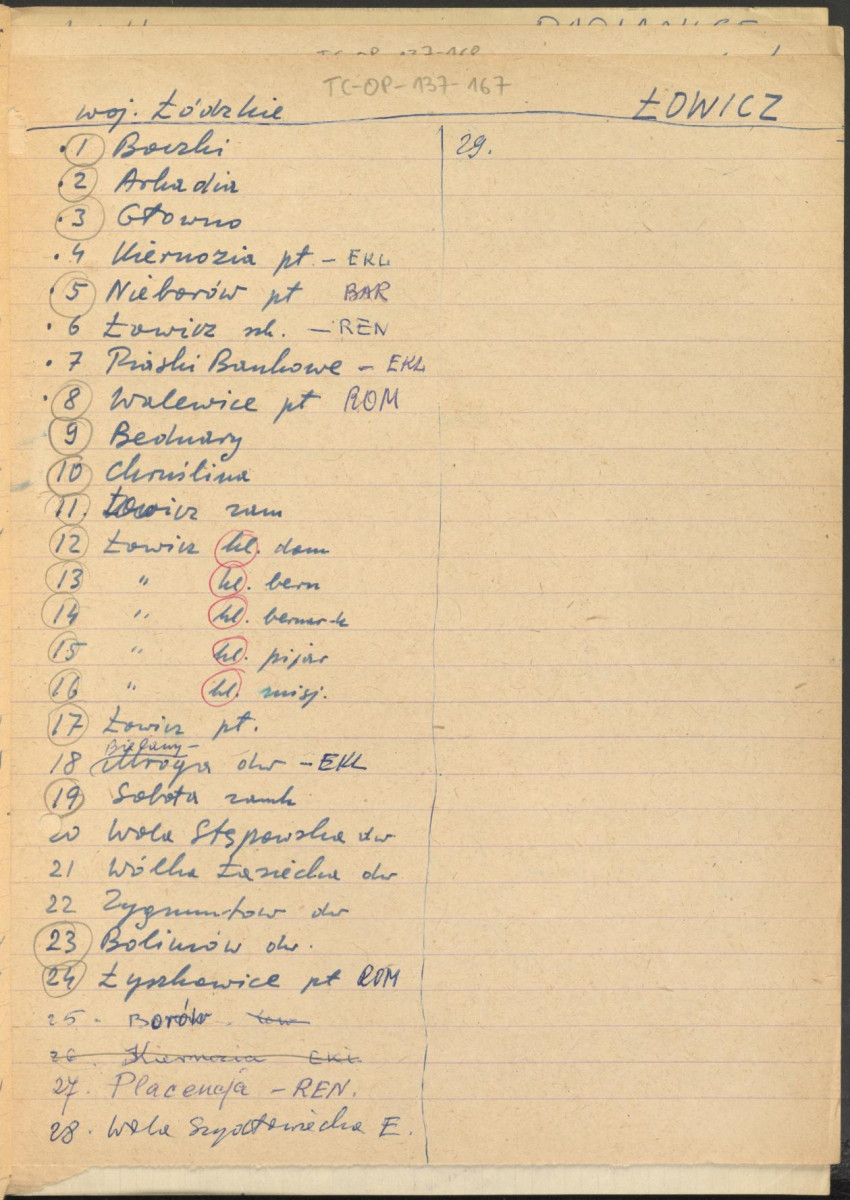 TC-OP-137-167
woj. Łódzkie ŁOWICZ
1 Boczki 29.
2 Arkadia
3 Głowno
4 Kiernozia pt. - EKL
5 Nieborów pt BAR
6 Łowicz sk. - REN
7 Piaski Bankowe - EKL
8 Walewice pt ROM
9 Bednary
10 Chruślina
11. Łowicz zam
12 Łowicz kl. dom
13 " kl. bern
14 " kl. bernar-k
15 " kl. pijar
16 " kl. misj.
17 Łowicz pt.
Bielawy-
18 Mroga dw - EKL
19 Sobota zamk
20 Wola Stępowska dw
21 Wólka Łasiecka dw
22 Zygmuntow dw
23 Bolimów dw.
24 Łyszkowice pt ROM
25. Borów. łow
26. Kiernozia EKL
27. Placencja - REN.
28. Wola Szydłowiecka E.